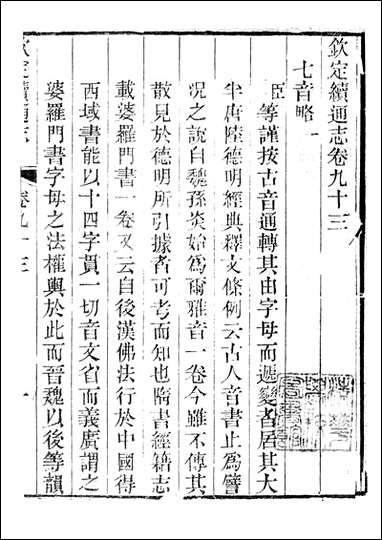 欽定續通志卷九十三
七音略一
臣等謹按古音通轉其由字母而遞變者居其大
半唐陸德明經典釋文條例云古人音書止為譬
況之說自魏孫炎始為爾雅音一卷今雖不傳其
散見於德明所引據者可考而知也隋書經籍志
載婆羅門書一卷又云自後漢佛法行於中國得
西域書能以十四字貫一切音文省而義廣謂之
婆羅門書字母之法權輿於此而晉魏以後等韻
欽定續通志
卷九十三
一